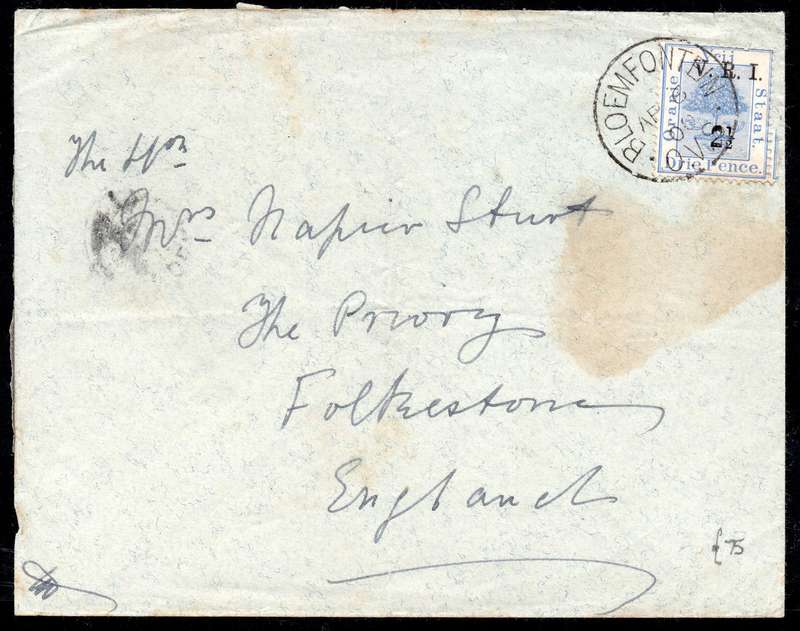 BLOEMFONTEIN
O.V.S.
V. R. I.
Oranje Vrij Staat.
2½
Drie Pence.
The Hon
Mrs Napier Sturt
The Priory
Folkestone
England
£75